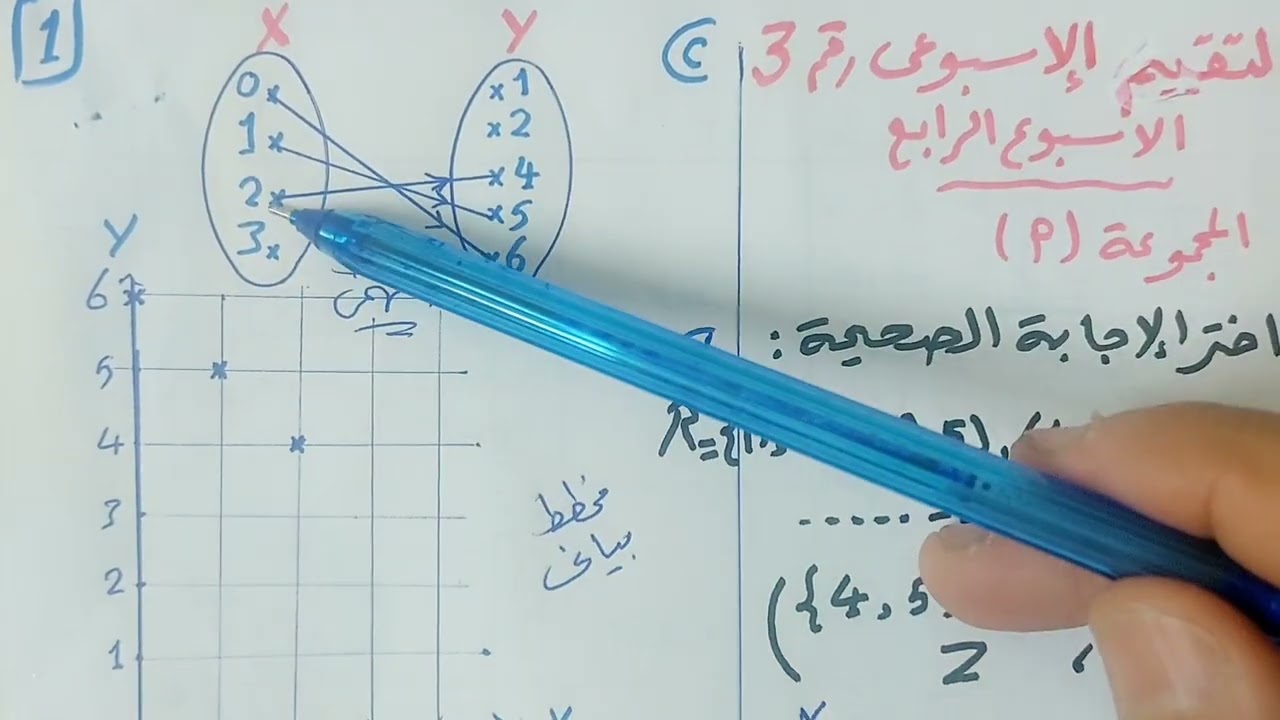 لتقييم الاسبوعى رقم 3
الاسبوع الرابع
المجموعة (P)
اختر الإجابة الصحيحة :
R={
5), (
......
({4, 5,
Z ،
X
1
X Y
0 1
1 2
2 4
3 5
6
Y
6
5
4
3
2
1
مخطط
بيانى
X